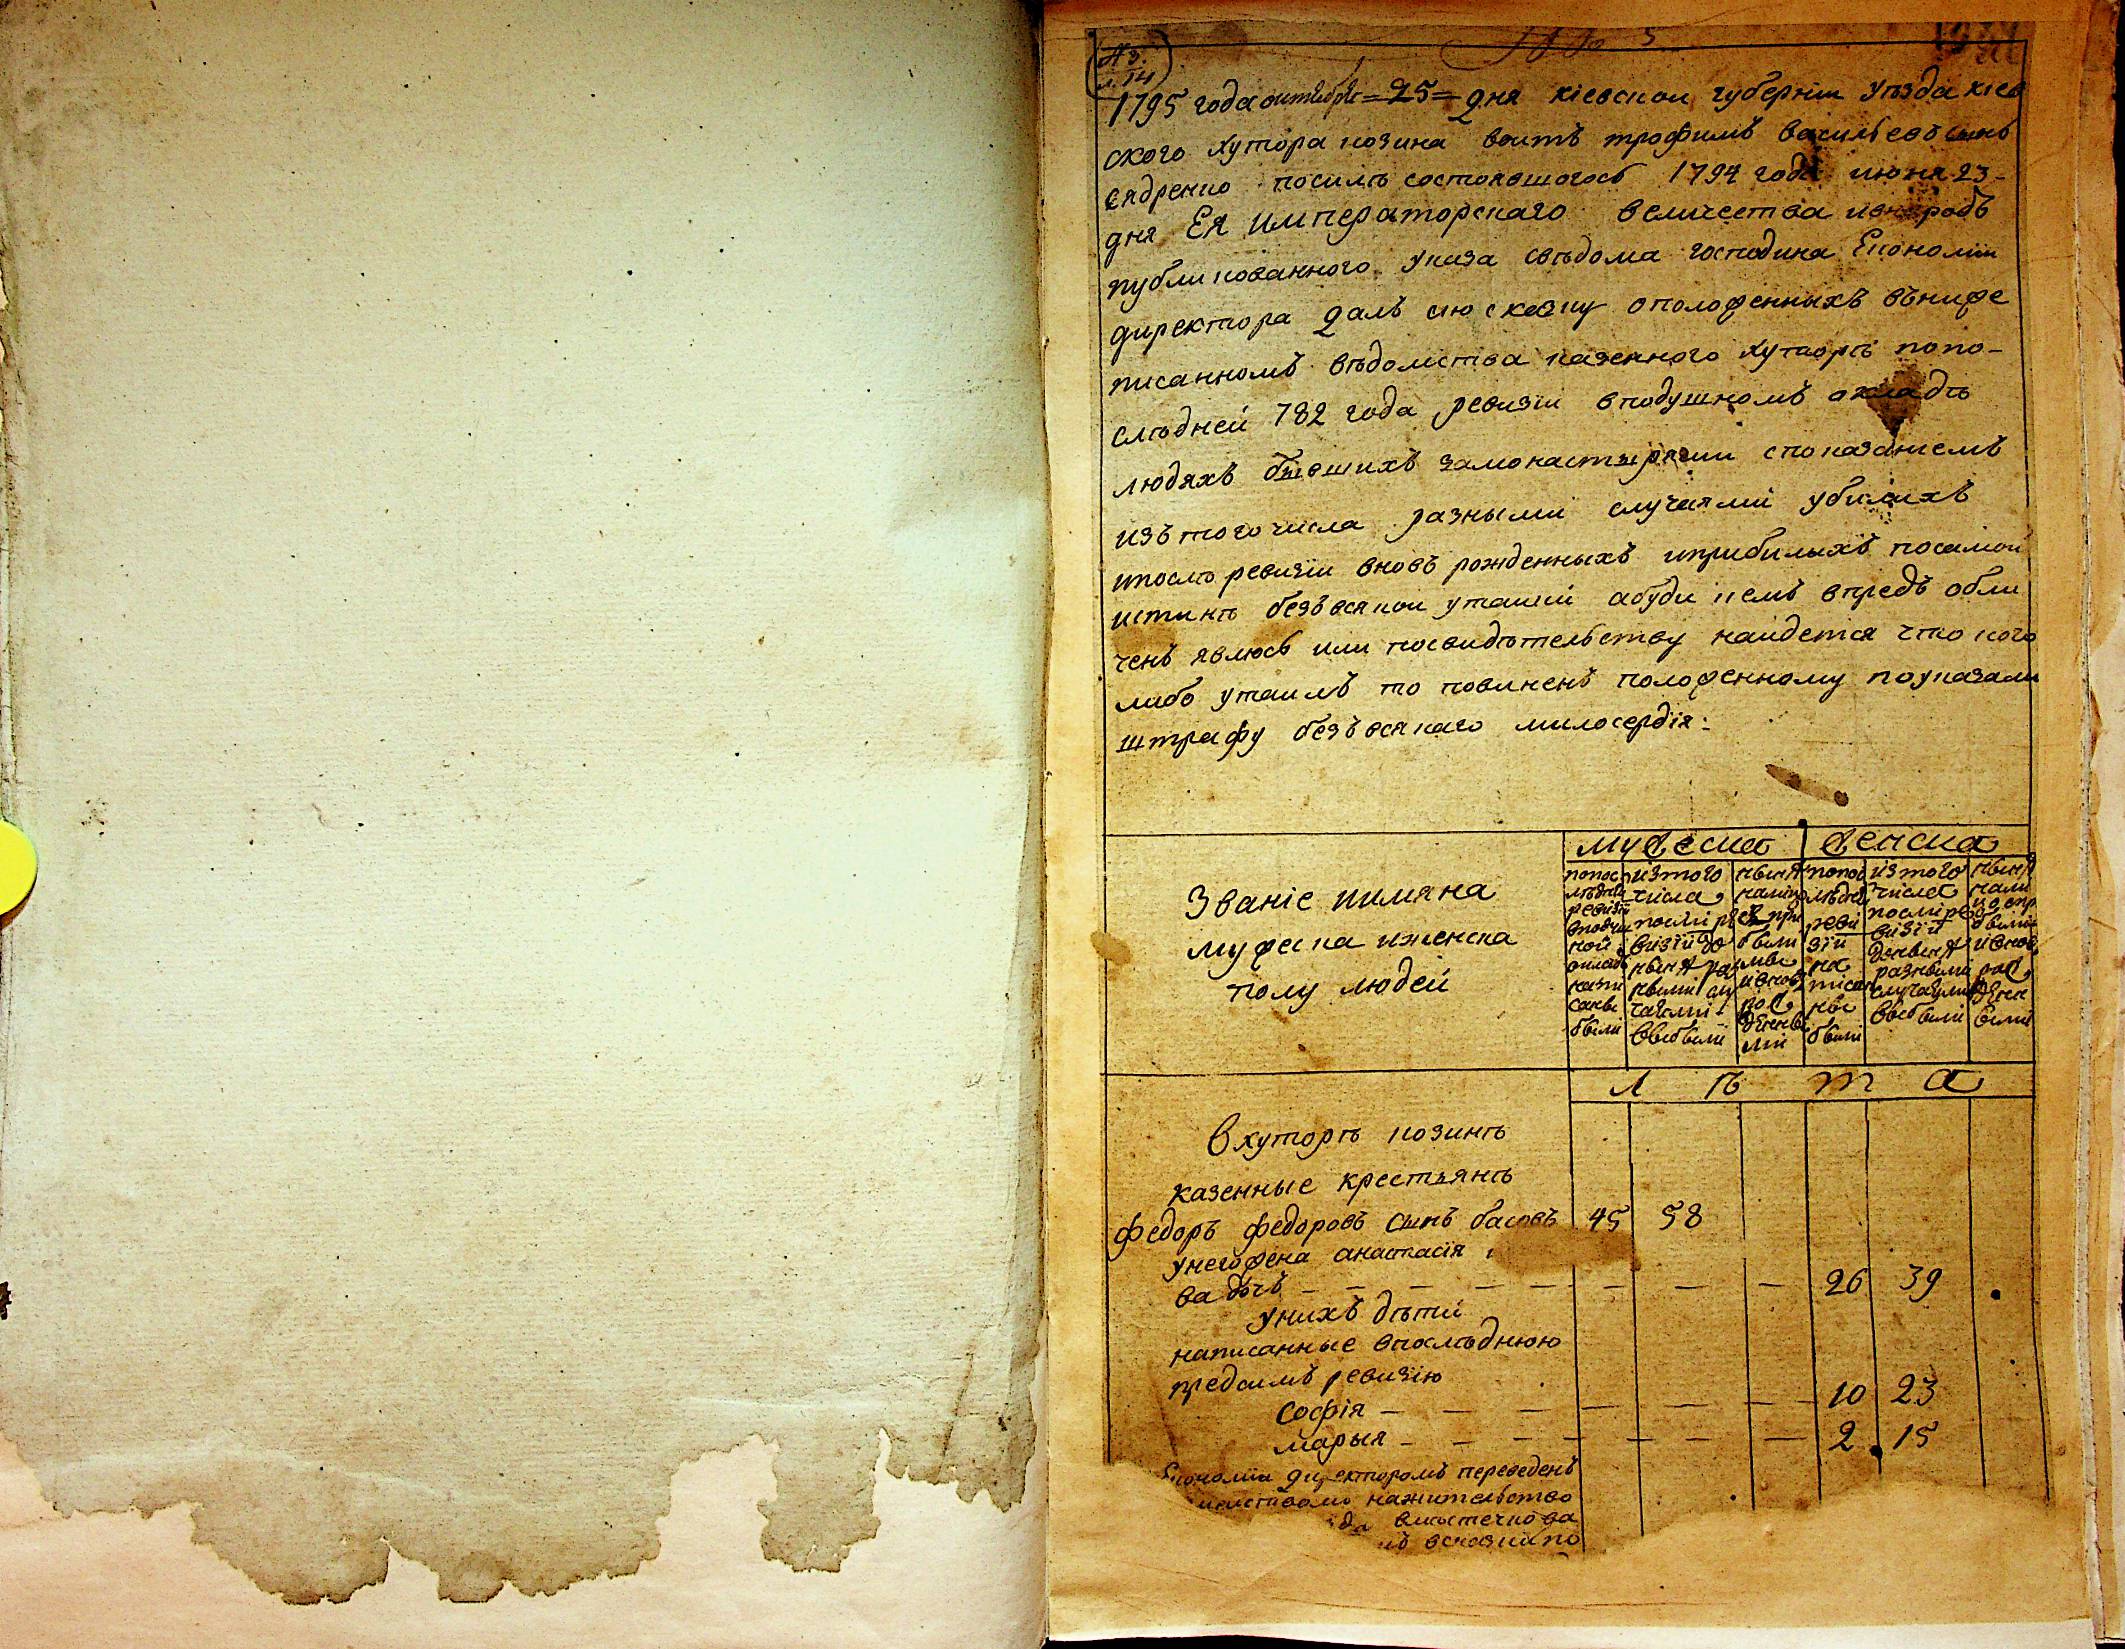 1795 года октября = 25 = дня кіевскои губерніи уѣзда кіев
ского хутора козина воитъ трофимъ васильевъ сынъ
посилѣ состоявшогось 1794 года июня 23-
дня Ея императорскаго величества ивнародъ
публикованного указа свѣдома господина Економіи
директора далъ сію сказку оположенныхъ въниже
писанномъ вѣдомства казенного хуторѣ попо-
слѣдней 782 года ревизіи вподушномъ окладѣ
людяхъ бывшихъ замонастырями споказаніемъ
изътого числа разными случаями убилихъ
ипослѣ ревизіи вновъ рожденныхъ иприбилыхъ посамой
истинѣ безъвсякои утаики абуди кемъ впредъ обли
ченъ явлюсь или посвидѣтельству наидется что кого
либо утаилъ то повиненъ положенному поуказами
штрафу безъвсякаго милосердія:
мужеска женска
Званіе иимяна
мужеска иженска
полу людей
попос
лѣдней
ревизіи
вподуш
ной
окладъ
напи
саны
были
изтого
числа
послі ре
визіи до
ныня раз
ными слу
чаями
выбыли
ныня
попос
лѣдней
реви
зіи
на
писан
ны
были
изтого
числа
послі ре
визіи
доныня
разными
случаями
выбыли
ныня
л ѣ т а
Вхуторѣ козинѣ
казенные крестьянѣ
Федоръ федоровъ сынъ басовъ 45 58
унегожена анастасія
ва дочь — — — — — — — 26 39
унихъ дѣти
написанные впослѣднюю
предсимъ ревизію
Софія — — — — — — 10 23
марья — — — — — — 2 15
Економіи директоромъ переведенъ
нажительство
вместечко ва
всказки по